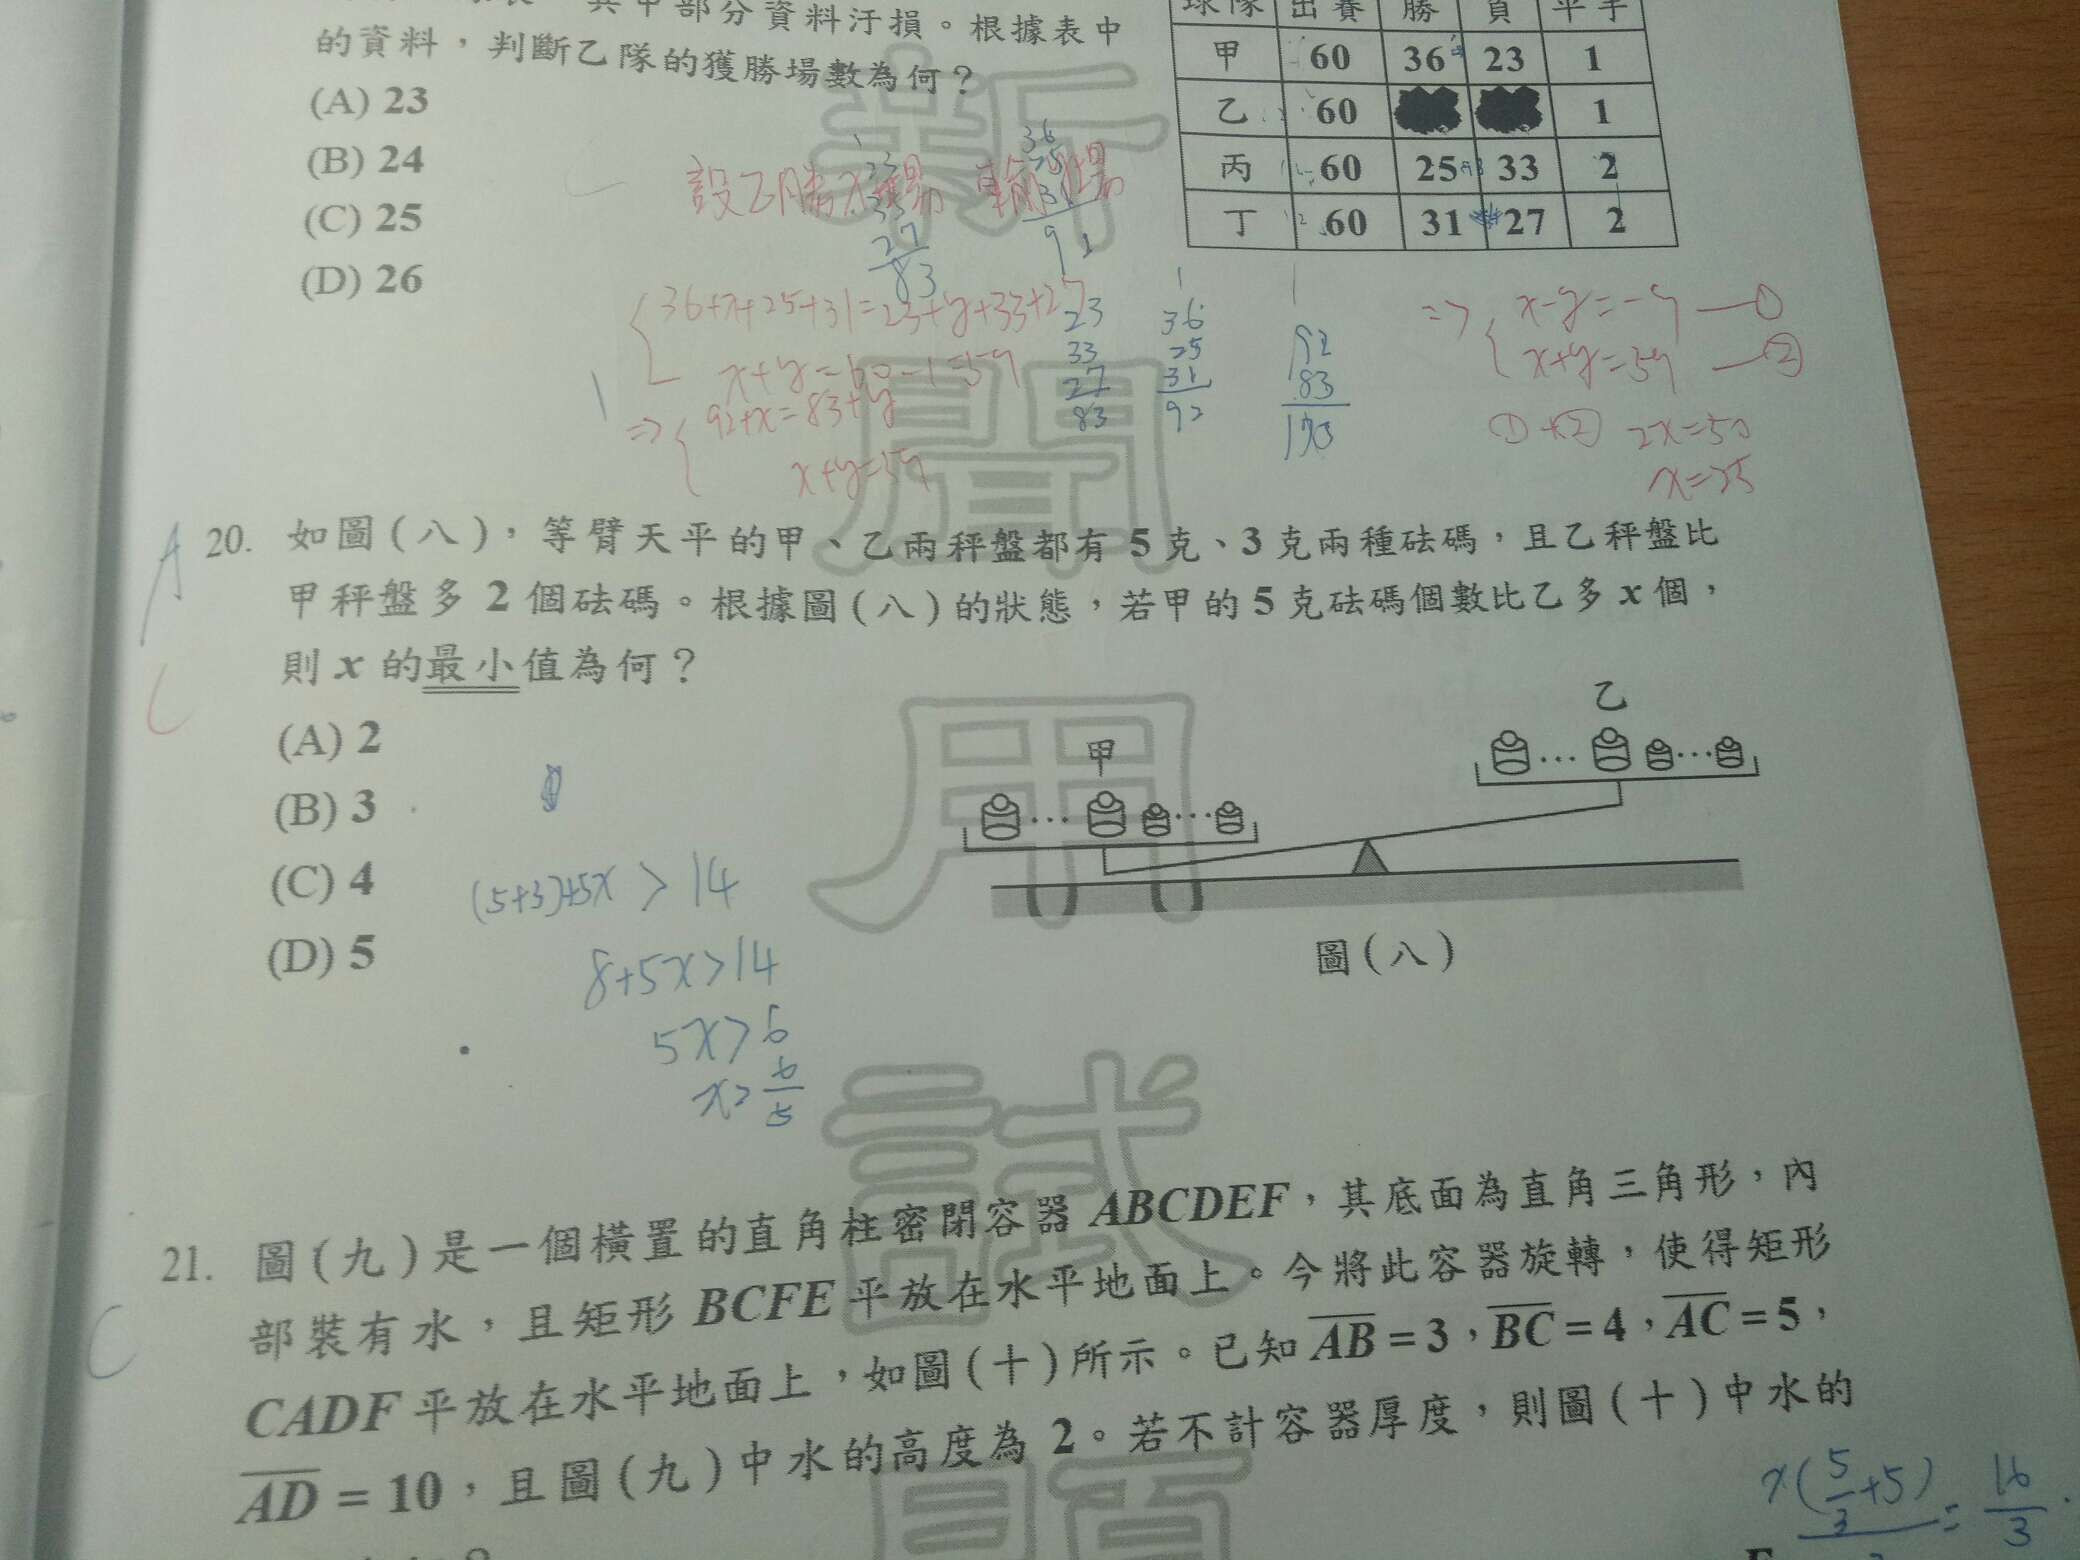 其中部分資料汙損。根據表中
的資料，判斷乙隊的獲勝場數為何？
(A) 23
(B) 24
(C) 25
(D) 26
球隊 出賽 勝 負 平手
甲 60 36 23 1
乙 60 1
丙 60 25 33 2
丁 60 31 27 2
設乙勝x場 輸y場
36
25
31
92
23
33
27
83
36+x+25+31=23+y+33+27
x+y=60-1=59
⇒ 92+x=83+y
x+y=59
23
33
27
83
36
25
31
92
92
83
⇒ x-y=-9 —①
x+y=59 —②
①+② 2x=50
x=25
A
C
20. 如圖(八)，等臂天平的甲、乙兩秤盤都有 5 克、3 克兩種砝碼，且乙秤盤比
甲秤盤多 2 個砝碼。根據圖(八)的狀態，若甲的 5 克砝碼個數比乙多 x 個，
則 x 的最小值為何？
(A) 2
(B) 3
(C) 4
(D) 5
甲
乙
圖(八)
(5+3)+5x > 14
8+5x>14
5x>6
x>6/5
C
21. 圖(九)是一個橫置的直角柱密閉容器 ABCDEF，其底面為直角三角形，內
部裝有水，且矩形 BCFE 平放在水平地面上。今將此容器旋轉，使得矩形
CADF 平放在水平地面上，如圖(十)所示。已知 AB = 3，BC = 4，AC = 5，
AD = 10，且圖(九)中水的高度為 2。若不計容器厚度，則圖(十)中水的
新聞用試